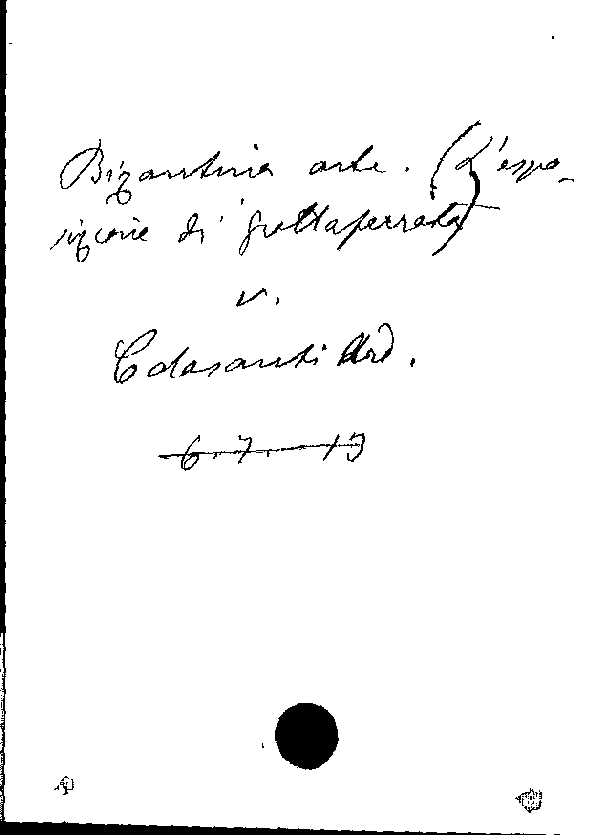 Bizantina arte. (L'espo-
sizione di Grottaferrata)
v.
Colasanti Ard.
6.7.13